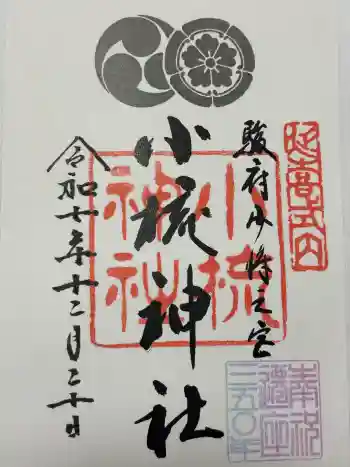 延喜式内
駿府少将之宮
小梳神社
小梳神社
令和七年十二月二十日
奉祝
遷座
三五〇年